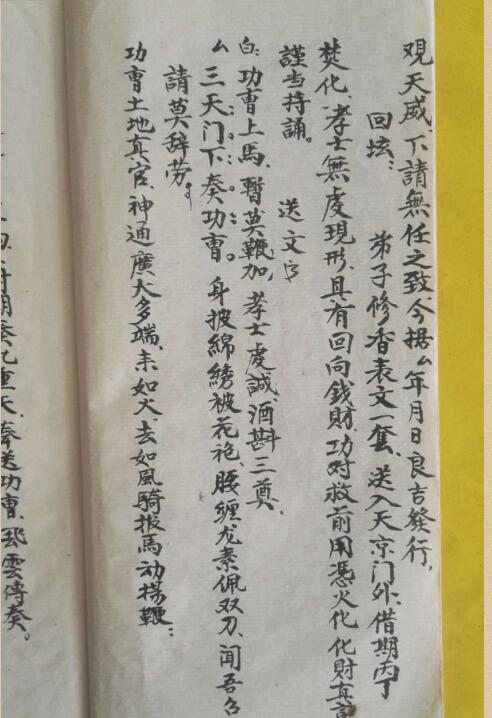 观天威、下請無任之致今据厶年月日良吉發行,
回垓: 弟子修香表文一套、送入天京门外、借期丙丁
焚化、孝士無虔現形、具有回向錢財、功对救前用憑火化、化財真言
謹当持誦。 送文字
白:功曹上馬、暫莫鞭加,孝士虔誠酒斟三奠、
厶三天门下奏功曹。身披綿綉被花袍、腰缠龙素佩双刀、闻吾召
請莫辞劳。
功曹土地真官、神通廣大多端、来如火、去如風騎报馬动揚鞭:
奏九重天、奏送功曹、飛雲傳奏。